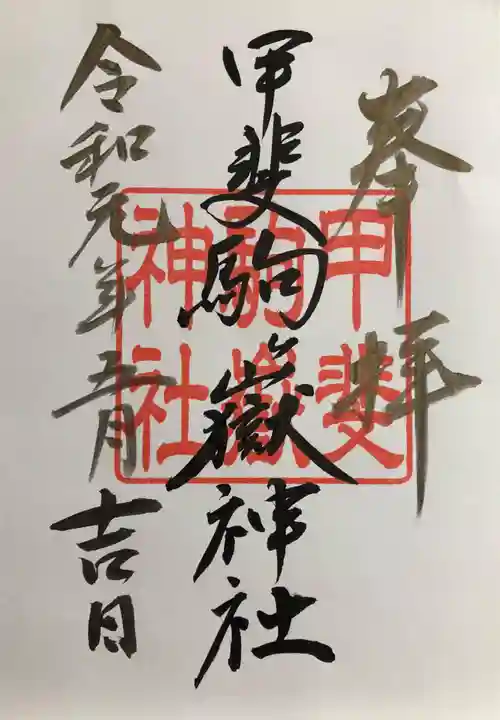 奉拝
甲斐駒ヶ嶽神社
甲斐
駒嶽
神社
令和元年五月吉日